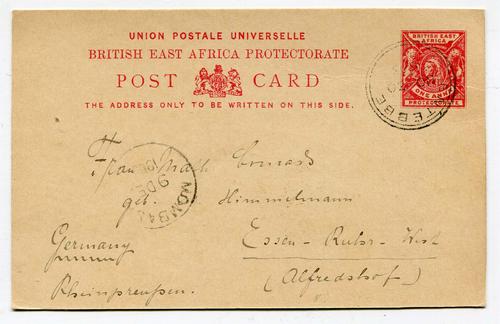 UNION POSTALE UNIVERSELLE
BRITISH EAST AFRICA PROTECTORATE
POST CARD
THE ADDRESS ONLY TO BE WRITTEN ON THIS SIDE.
BRITISH EAST AFRICA
ONE ANNA
PROTECTORATE
TEBBE
MOMBA
9 DE
Frau
geb. Himmelmann
Germany
Essen-Ruhr-West
(Alfredshof)
Rheinpreußen.